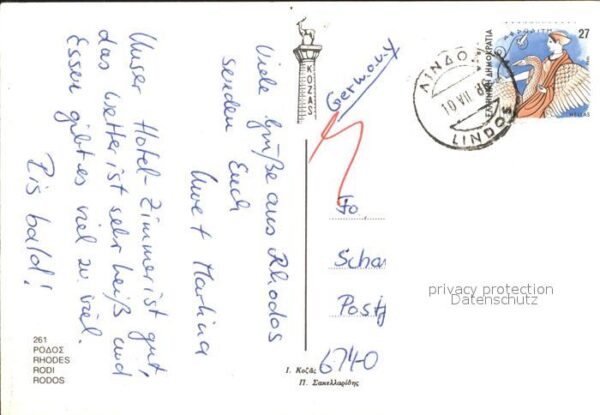 Unser Hotel-Zimmer ist gut,
das Wetter ist sehr heiß und
Essen gibt es viel zu viel.
Bis bald!
Viele Grüße aus Rhodos
senden
Euch
Uwe + Martina
261
ΡΟΔΟΣ
RHODES
RODI
RODOS
KOZAS
Germany
ΑΦΡΟΔΙΤΗ
27
ΕΛΛΗΝΙΚΗ ΔΗΜΟΚΡΑΤΙΑ
HELLAS
ΛΙΝΔΟΣ
VII
LINDOS
Fa.
Postf
6740
privacy protection
Datenschutz
Ι. Κοζᾶς
Π. Σακελλαρίδης